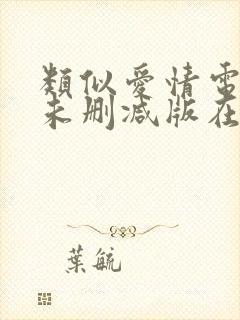 類似愛情電
未刪減版在
葉毓